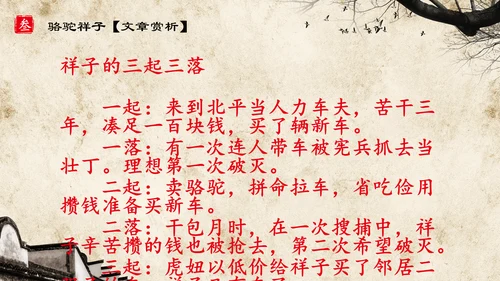 叁 骆驼祥子【文章赏析】
祥子的三起三落
一起：来到北平当人力车夫，苦干三
年，凑足一百块钱，买了辆新车。
一落：有一次连人带车被宪兵抓去当
壮丁。理想第一次破灭。
二起：卖骆驼，拼命拉车，省吃俭用
攒钱准备买新车。
二落：干包月时，在一次搜捕中，祥
子辛苦攒的钱也被抢去，第二次希望破灭。
三起：虎妞以低价给祥子买了邻居二